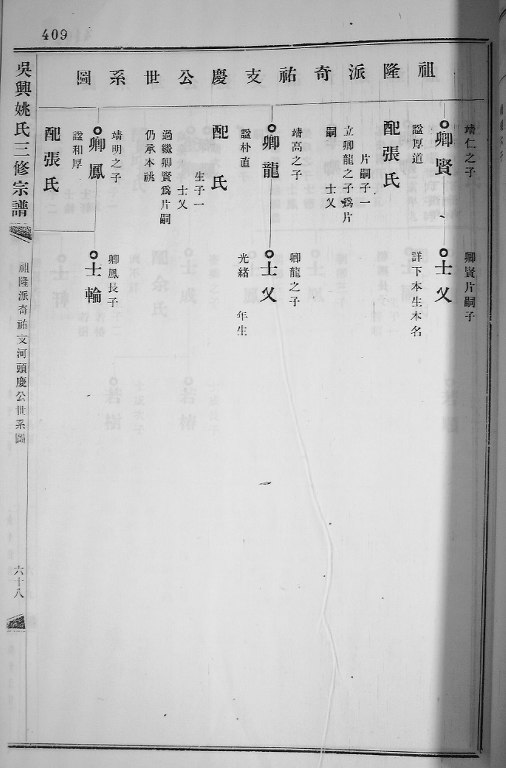 409
祖隆派奇祐支慶公世系圖
靖仁之子
卿賢
諡厚道
配張氏
片嗣子一
立卿龍之子爲片
嗣
士义
靖高之子
卿龍
諡朴直
配 氏
生子一
士义
過繼卿賢爲片嗣
仍承本祧
靖明之子
卿鳳
諡和厚
配張氏
卿賢片嗣子
士义
詳下本生木名
卿龍之子
士义
光緒 年生
卿鳳長子
士輪
吳興姚氏三修宗譜
祖隆派奇祐支河頭慶公世系圖
六十八